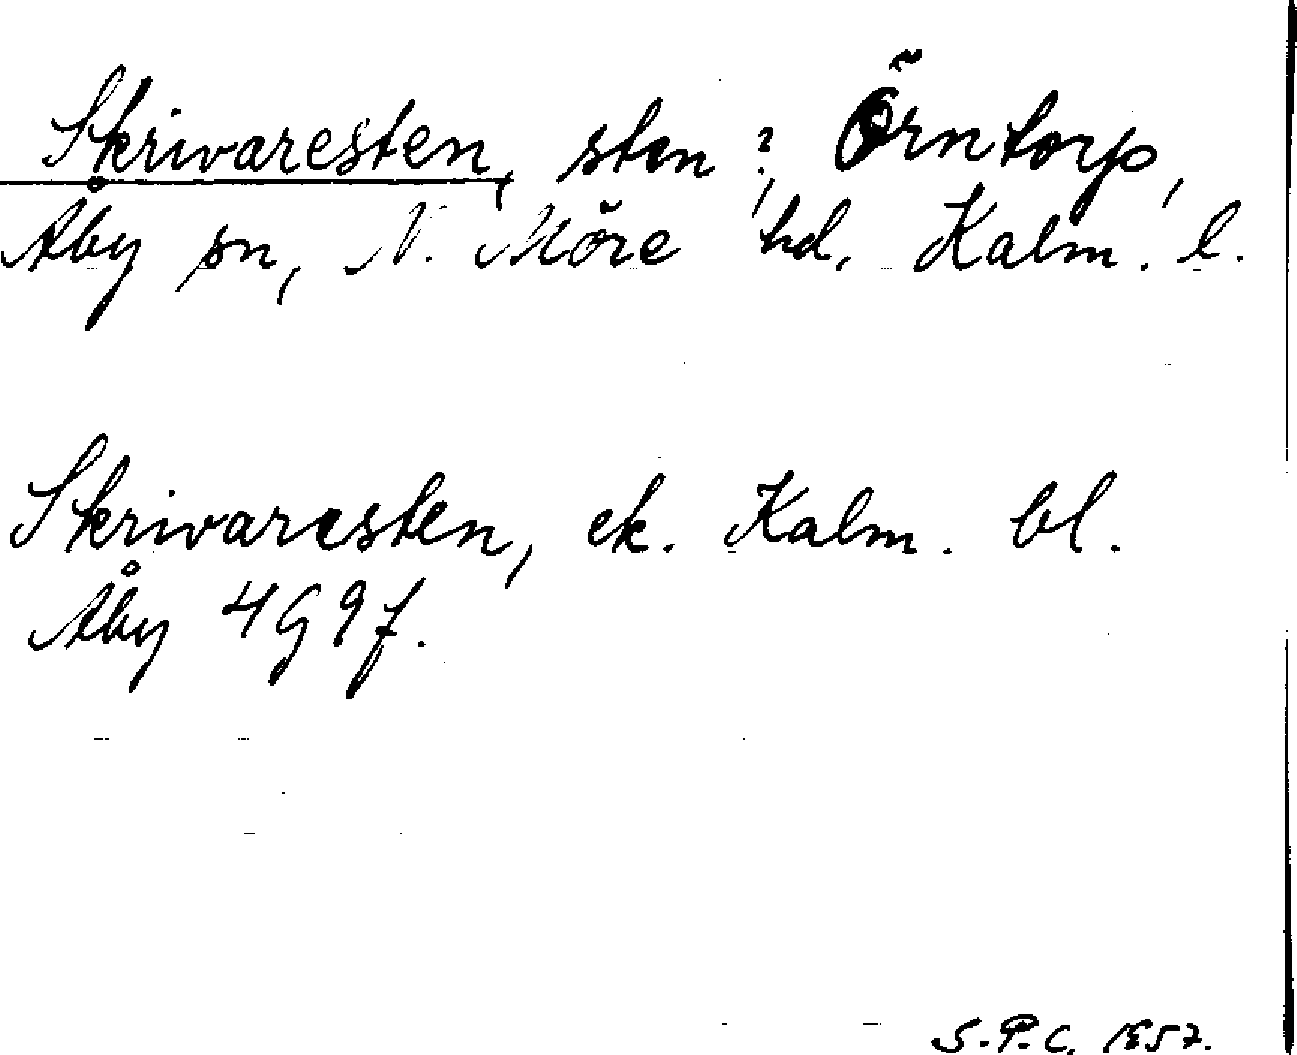 Skrivaresten, sten?, Örntorp,
Åby sn, N. Möre hd, Kalm. l.
Skrivaresten, ek. Kalm. bl.
Åby 4G9f.
S.P.C. 1957.